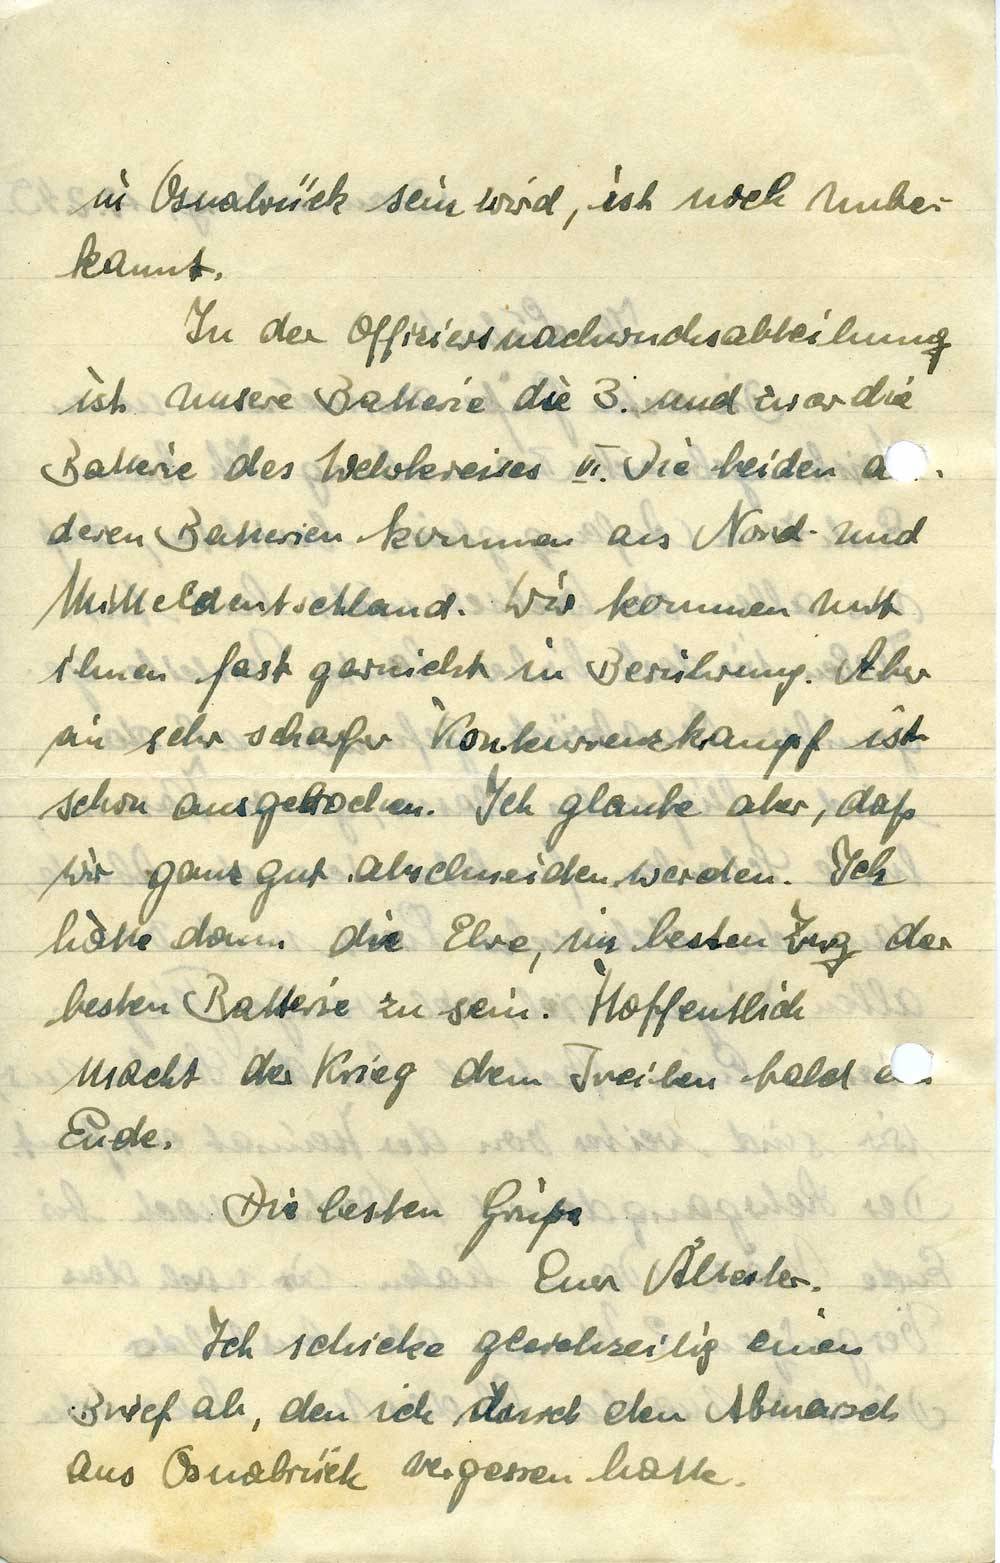 in Osnabrück sein wird, ist noch unbe-
kannt.
In der Offiziersnachwuchsabteilung
ist unsere Batterie die 3. und zwar die
Batterie des Wehrkreises VI. Die beiden a
deren Batterien kommen aus Nord- und
Mitteldeutschland. Wir kommen mit
ihnen fast garnicht in Berührung. Aber
ein sehr scharfer Konkurrenzkampf ist
schon ausgebrochen. Ich glaube aber, daß
wir ganz gut abschneiden werden. Ich
hätte dann die Ehre, im besten Zug der
besten Batterie zu sein. Hoffentlich
macht der Krieg dem Treiben bald ein
Ende.
Die besten Grüße
Euer Ältester.
Ich schicke gleichzeitig einen
Brief ab, den ich durch den Abmarsch
aus Osnabrück vergessen hatte.